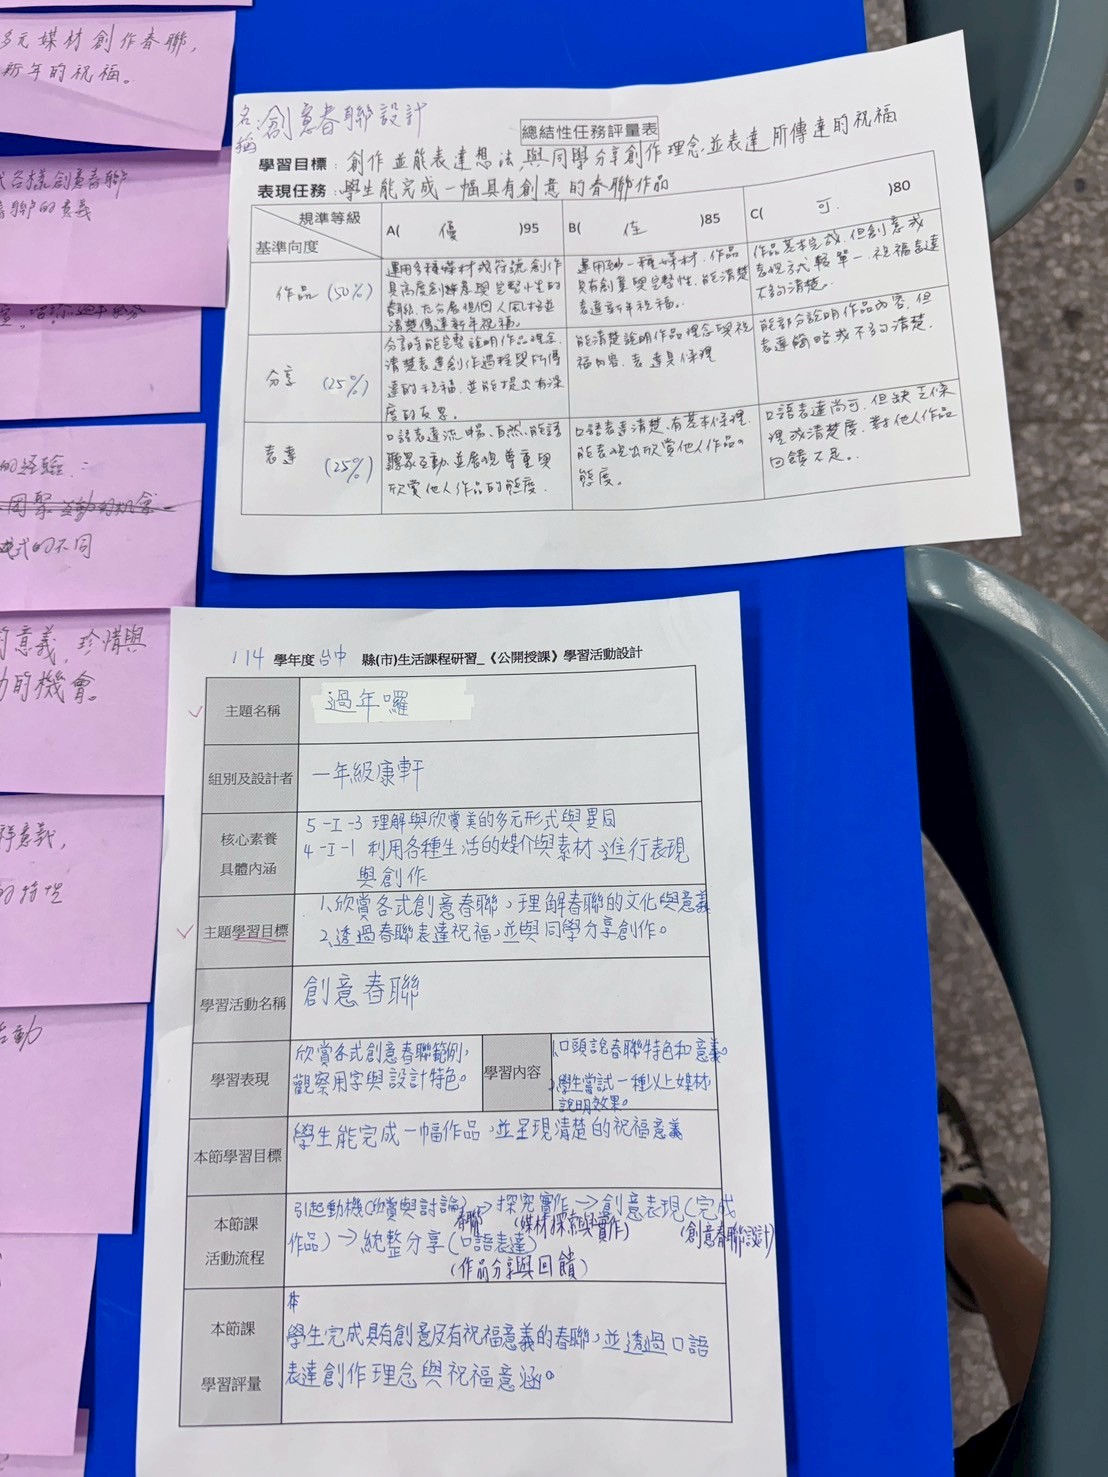 多元媒材創作春聯,
新年的祝福。
各樣創意春聯
春聯的意義
的經驗:
團聚
式的不同
的意義,珍惜與
的機會。
祥意義,
的特性
活動
名稱:創意春聯設計
總結性任務評量表
學習目標:創作並能表達想法,與同學分享創作理念,並表達所傳達的祝福
表現任務:學生能完成一幅具有創意的春聯作品
規準等級
基準向度
A( 優 )95
B( 佳 )85
C( 可. )80
作品 (50%)
運用多種媒材或符號創作
具高度創意與完整性的
春聯,充分展現個人風格並
清楚傳達新年祝福。
運用到一種媒材,作品
具有創意與完整性,能清楚
表達新年祝福。
作品基本完成,但創意或
表現方式較單一,祝福表達
不夠清楚。
分享 (25%)
分享時能完整說明作品理念,
清楚表達創作過程與所傳
達的祝福,並能提出有深
度的反思。
能清楚說明作品理念與祝
福內容,表達具條理
能部分說明作品內容,但
表達簡略或不夠清楚.
表達 (25%)
口語表達流暢、自然,能語
聽眾互動,並展現尊重與
欣賞他人作品的態度.
口語表達清楚,有基本條理,
能表現出欣賞他人作品的
態度。
口語表達尚可,但缺乏條
理或清楚度,對他人作品
回饋不足。
114 學年度 台中 縣(市)生活課程研習_《公開授課》學習活動設計
主題名稱
過年囉
組別及設計者
一年級康軒
核心素養
具體內涵
5-I-3 理解與欣賞美的多元形式與異同
4-I-1 利用各種生活的媒介與素材進行表現
與創作
主題學習目標
1.欣賞各式創意春聯,理解春聯的文化與意義
2.透過春聯表達祝福,並與同學分享創作。
學習活動名稱
創意春聯
學習表現
欣賞各式創意春聯範例,
觀察用字與設計特色。
學習內容
1.口頭說春聯特色和意義。
2.學生嘗試一種以上媒材
說明效果。
本節學習目標
學生能完成一幅作品,並呈現清楚的祝福意義
本節課
活動流程
引起動機(欣賞與討論)→探究實作→創意表現(完成
春聯 (媒材探索與實作) (創意春聯設計)
作品)→統整分享(口語表達)
(作品分享與回饋)
本節課
學習評量
本
學生完成具有創意及有祝福意義的春聯,並透過口語
表達創作理念與祝福意涵。